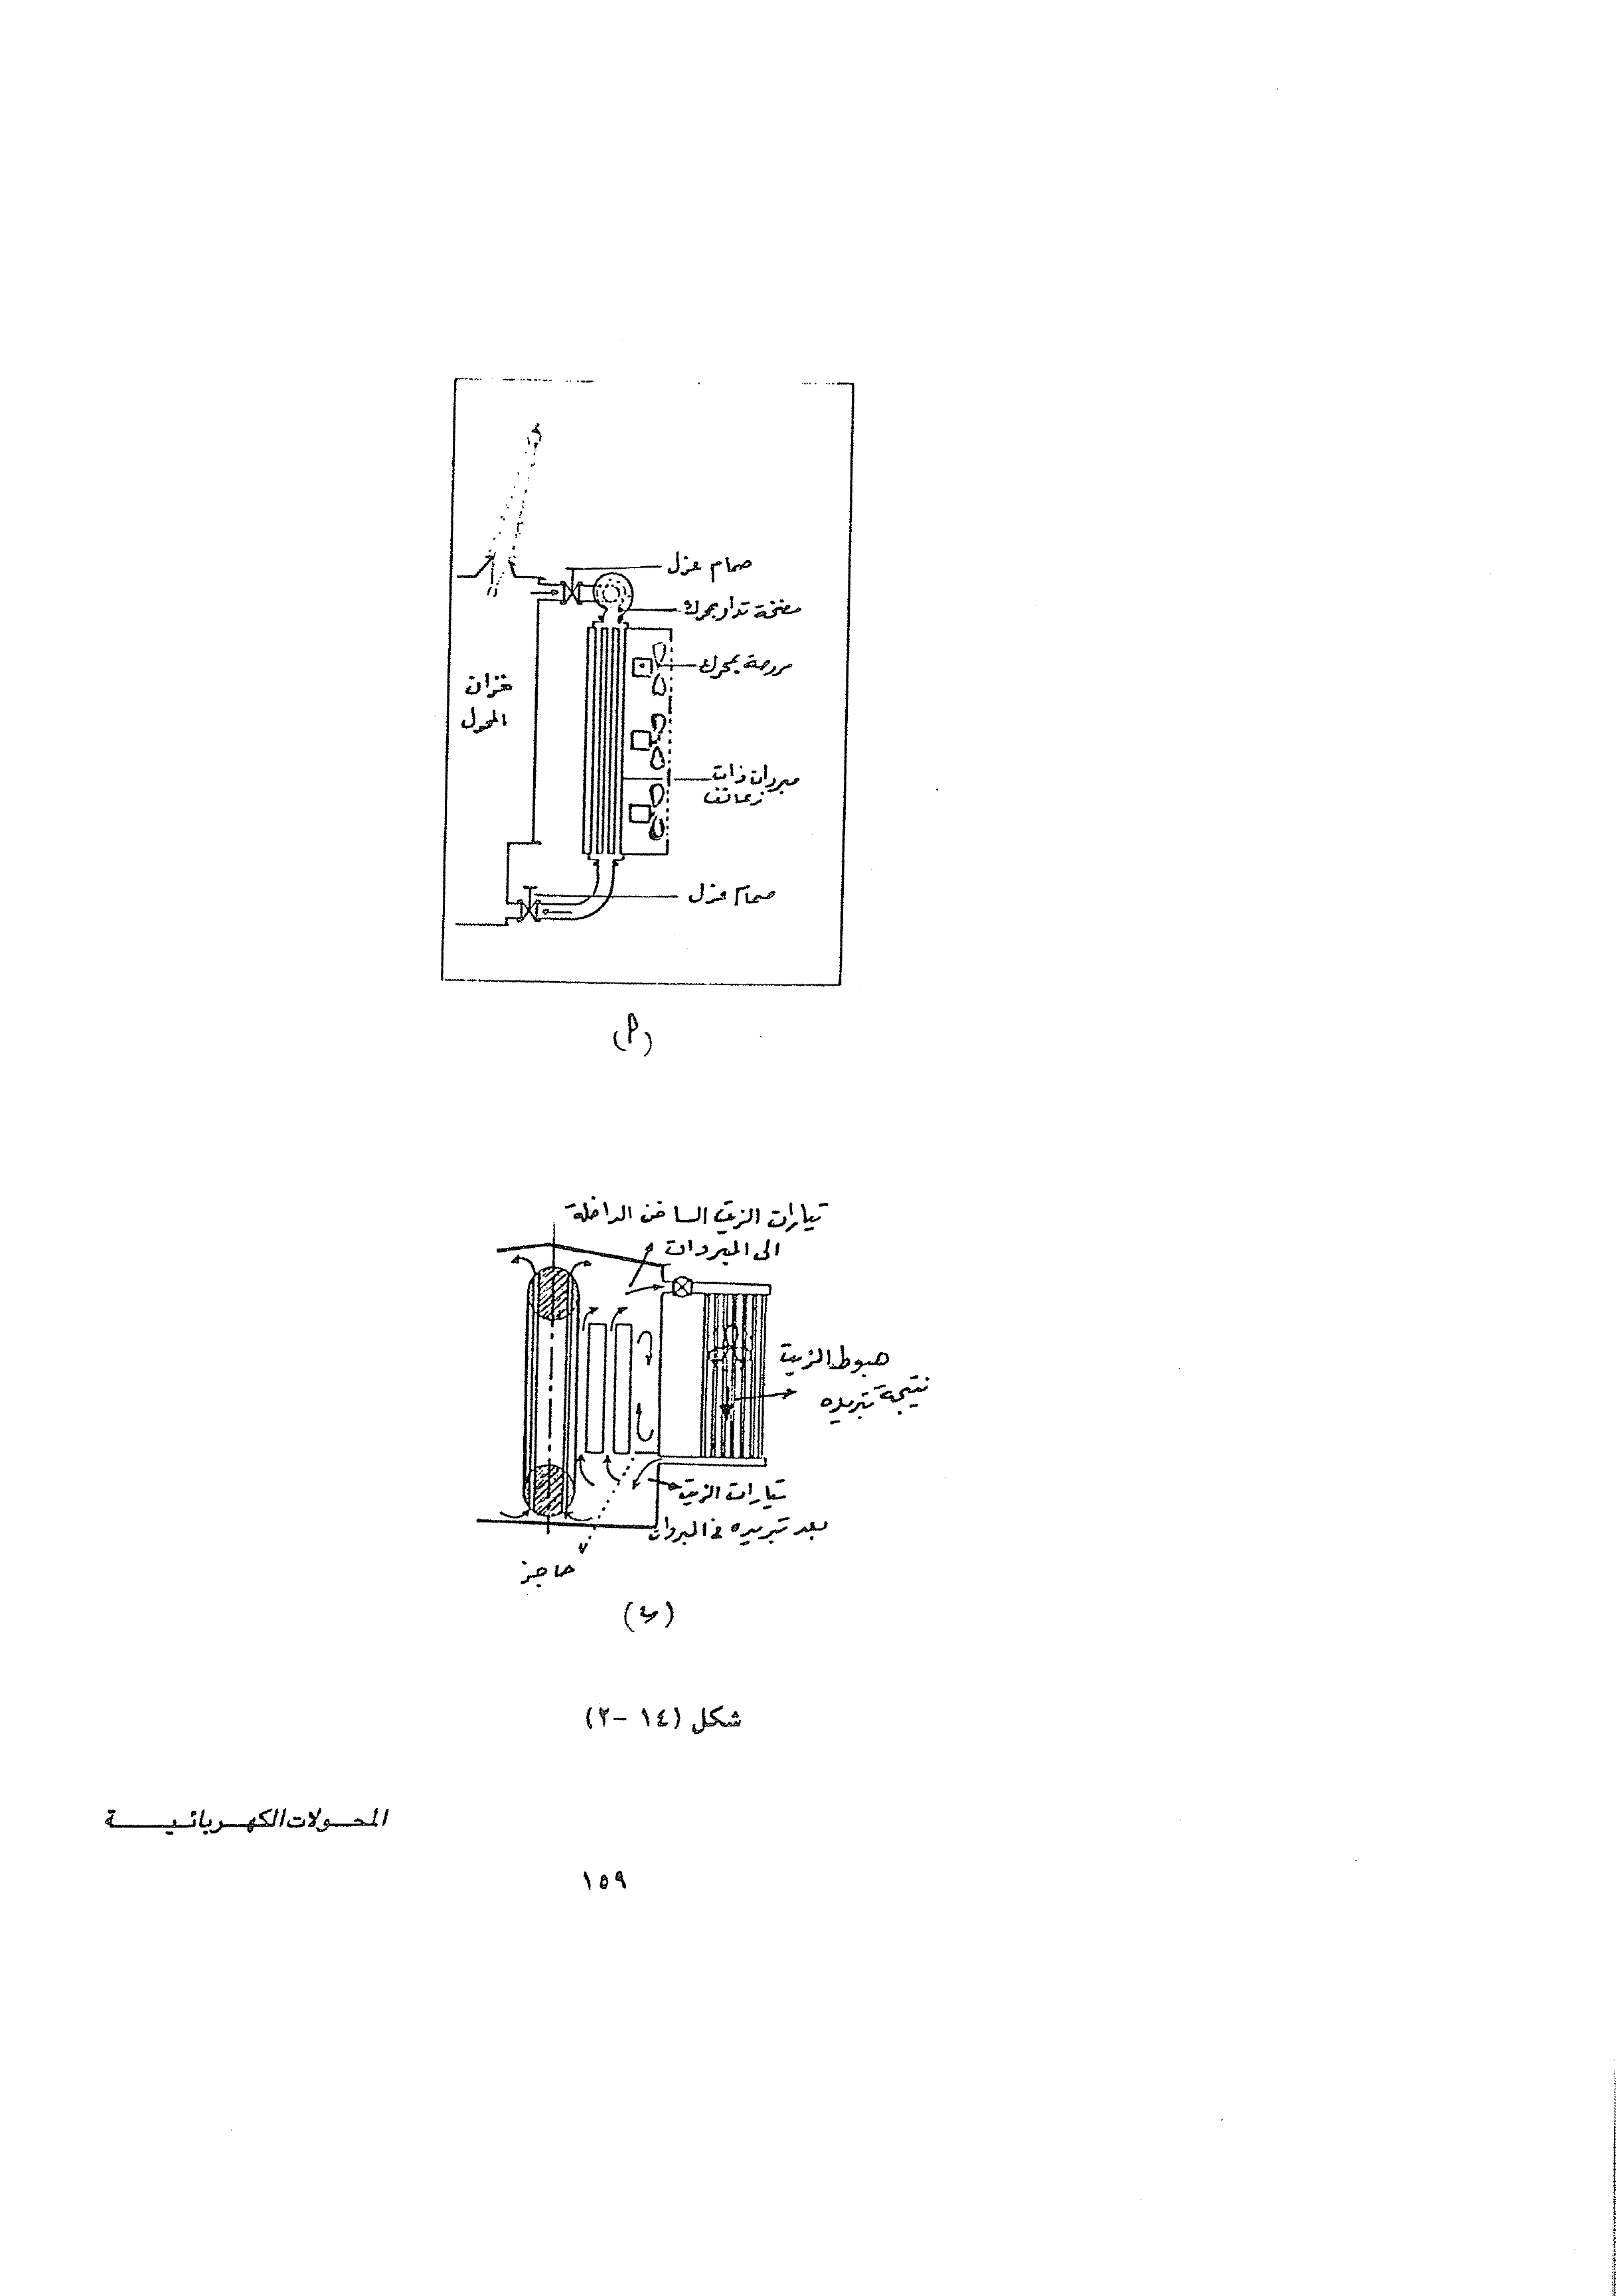 صمام عزل
مضخة تدار بمحرك
مروحة بمحرك
خزان
المحول
مبردات ذات
زعانف
صمام عزل
(أ)
تيارات الزيت الساخن الداخلة
الى المبردات
هبوط الزيت
نتيجة تبريده
تيارات الزيت
بعد تبريده فى المبردات
حاجز
(ب)
شكل (١٤ -٢)
المحولات الكهربائية
١٥٩